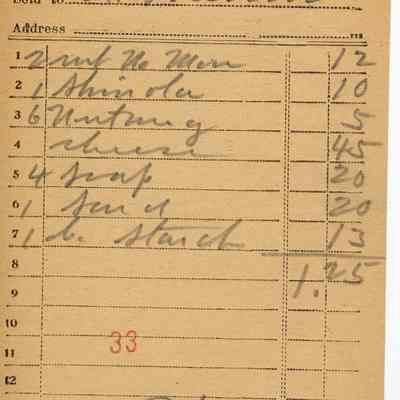 Sold to
Address
1 2 12
2 1 Shinola 10
3 6 Nutmeg 5
4 cheese 45
5 4 Soap 20
6 1 20
7 1 b. Starch 13
8 1.25
9
10
33
11
12